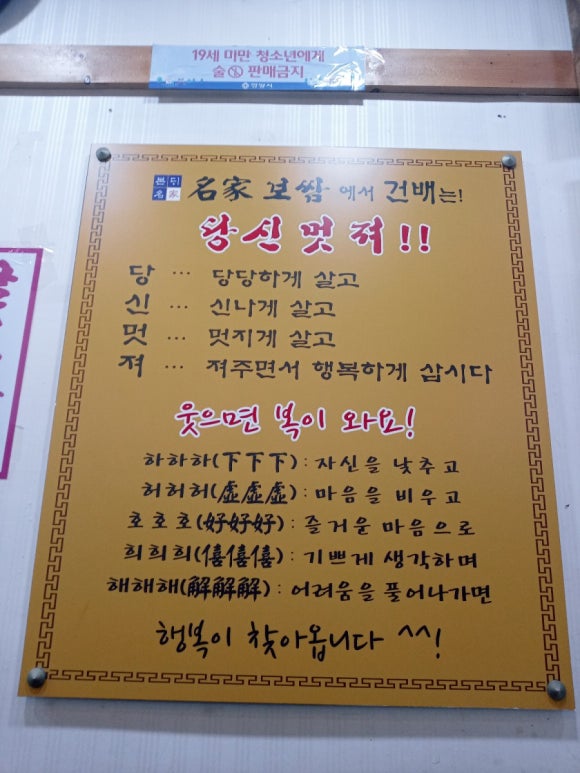 19세 미만 청소년에게
술 판매금지
본뒤
名家
名家 보쌈에서 건배는!
당신멋져!!
당 … 당당하게 살고
신 … 신나게 살고
멋 … 멋지게 살고
져 … 져주면서 행복하게 삽시다
웃으면 복이 와요!
하하하(下下下) : 자신을 낮추고
허허허(虛虛虛) : 마음을 비우고
호호호(好好好) : 즐거운 마음으로
희희희(僖僖僖) : 기쁘게 생각하며
해해해(解解解) : 어려움을 풀어나가면
행복이 찾아옵니다 ^^!